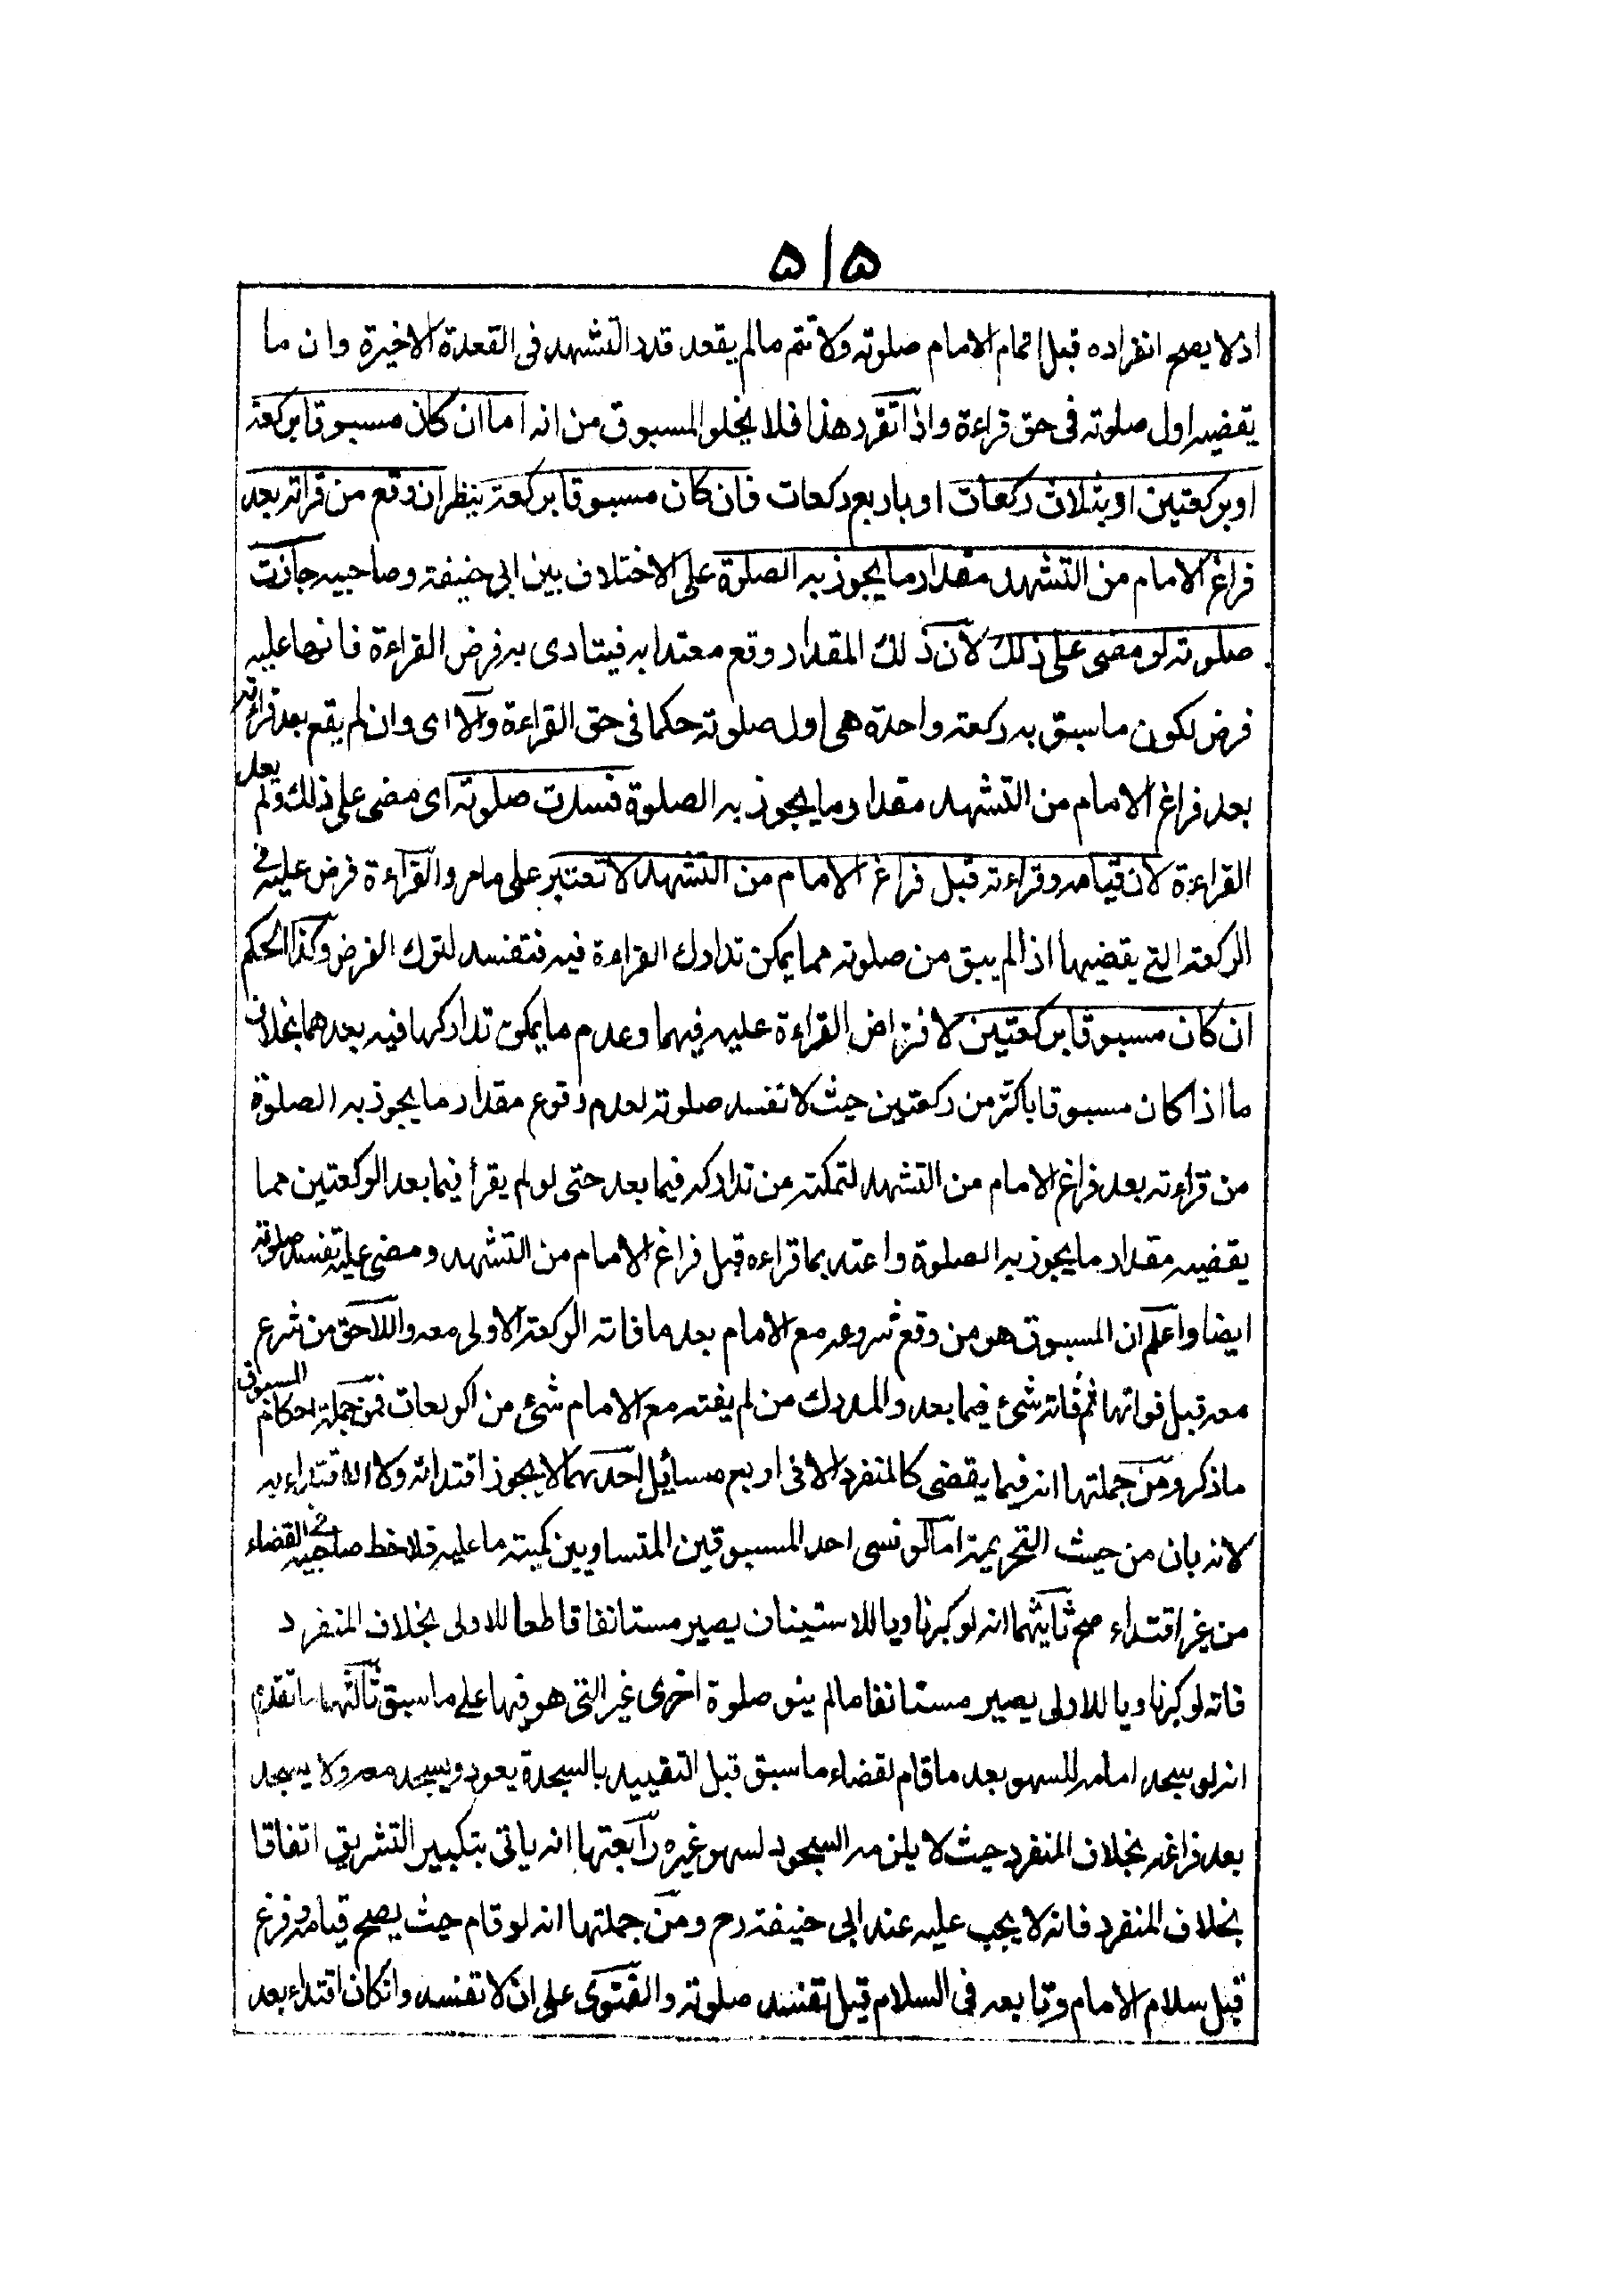 ۵۱۵
اذ لا يصح انفراده قبل اتمام الامام صلوته ولا تتم ما لم يقعد قدر التشهد فى القعدة الاخيرة وان ما
يقضيه اول صلوته فى حق قراءة واذا تقرر هذا فلا يخلو المسبوق من انه اما ان كان مسبوقا بركعة
او بركعتين او بثلاث ركعات او باربع ركعات فان كان مسبوقا بركعة ينظر ان وقع من قراته بعد
فراغ الامام من التشهد مقدار ما يجوز به الصلوة على الاختلاف بين ابى حنيفة وصاحبيه جازت
صلوته لو مضى على ذلك لان ذلك المقدار وقع معتدا به فيتادى به فرض القراءة فانها عليه
فرض لكون ما سبق به ركعة واحدة هى اول صلوته حكما فى حق القراءة والا اى وان لم يقع بعد قراءته
بعد فراغ الامام من التشهد مقدار ما يجوز به الصلوة فسدت صلوته اى مضى على ذلك ولم يعد
القراءة لان قيامه وقراءته قبل فراغ الامام من التشهد لا تعتبر على ما مر والقراءة فرض عليه فى
الركعة التى يقضيها اذا لم يبق من صلوته مما يمكن تدارك القراءة فيه فتفسد لترك الفرض وكذا الحكم
ان كان مسبوقا بركعتين لافتراض القراءة عليه فيهما وعدم ما يمكن تداركها فيه بعدهما بخلاف
ما اذا كان مسبوقا باكثر من ركعتين حيث لا تفسد صلوته لعدم وقوع مقدار ما يجوز به الصلوة
من قراءته بعد فراغ الامام من التشهد لتمكنه من تداركه فيما بعد حتى لو لم يقرأ فيما بعد الركعتين مما
يقضيه مقدار ما يجوز به الصلوة واعتد بما قراءه قبل فراغ الامام من التشهد ومضى عليه تفسد صلوته
ايضا واعلم ان المسبوق هو من وقع شروعه مع الامام بعد ما فاته الركعة الاولى معه واللاحق من شرع
معه قبل فواتها ثم فاته شئ فيما بعد والمدرك من لم يفته مع الامام شئ من الركعات فمن جملة احكام المسبوق
ما ذكر ومن جملتها انه فيما يقضى كالمنفرد الا فى اربع مسائل احدىها لا يجوز اقتدائه ولا الاقتداء به
لانه بان من حيث التحريمة اما لو نسى احد المسبوقين المتساويين كمية ما عليه فلاحظ صاحبه فى القضاء
من غير اقتداء صح ثانيتهما انه لو كبر ناويا للاستيناف يصير مستانفا قاطعا للاولى بخلاف المنفرد
فانه لو كبر ناويا للاولى يصير مستانفا ما لم ينو صلوة اخرى غير التى هو فيها على ما سبق ثالثتها ما تقدم
انه لو سجد امامه للسهو بعد ما قام لقضاء ما سبق قبل التقييد بالسجدة يعود ويسجد معه ولا يسجد
بعد فراغه بخلاف المنفرد حيث لا يلزمه السجود لسهو غيره رابعتها انه ياتى بتكبير التشريق اتفاقا
بخلاف المنفرد فانه لا يجب عليه عند ابى حنيفة رح ومن جملتها انه لو قام حيث يصح قيامه وفرغ
قبل سلام الامام وتابعه فى السلام قيل تفسد صلوته والفتوى على ان لا تفسد وانكان اقتداء بعد